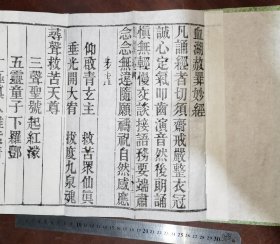 血湖赦罪妙經
凡誦經者切須齋戒嚴整衣冠
誠心定氣叩齒演音然後朗誦
慎無輕慢交談接語務要端肅
念念無違隨願禱祝自然感應
仰啟青玄主 救苦眾仙真
垂光開大宥 拔度九泉魂
尋聲救苦天尊
三聲聖號起紅濛
五靈童子下羅酆